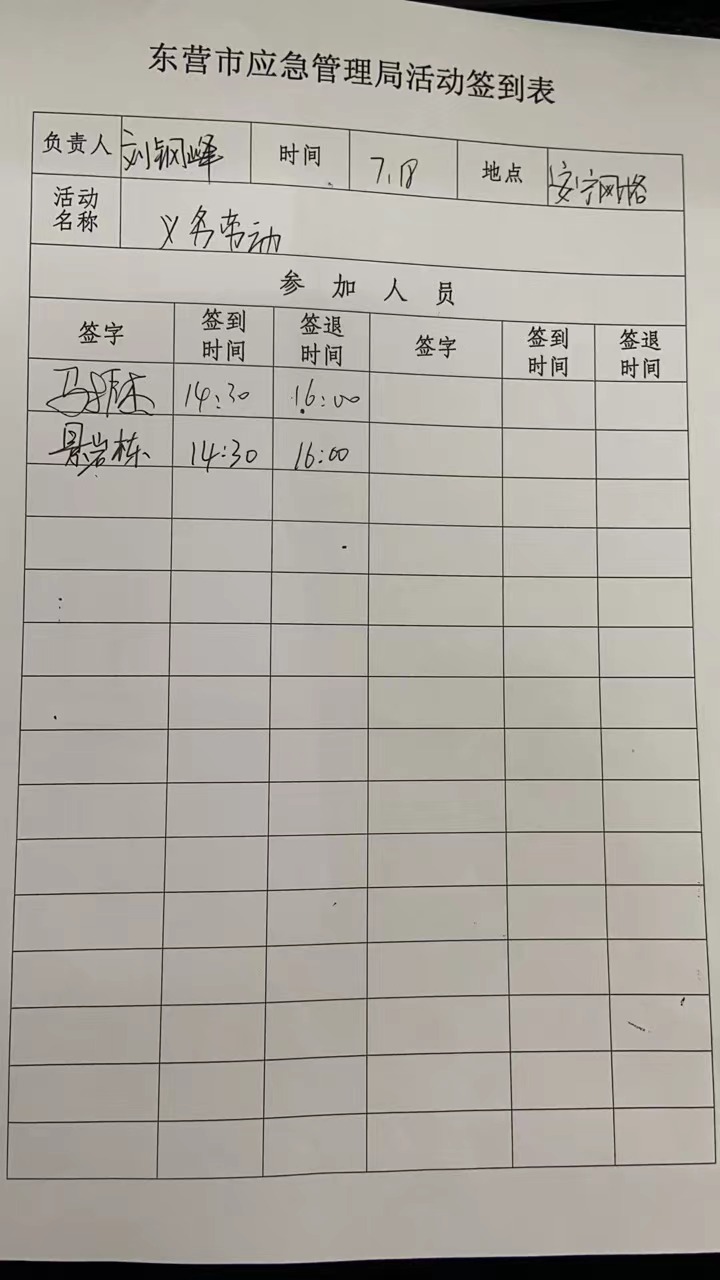 东营市应急管理局活动签到表
负责人 刘钢峰 时间 7.18 地点 安宁网格
活动名称 义务劳动
参加人员
签字 签到时间 签退时间 签字 签到时间 签退时间
14:30 16:00
景岩栋 14:30 16:00